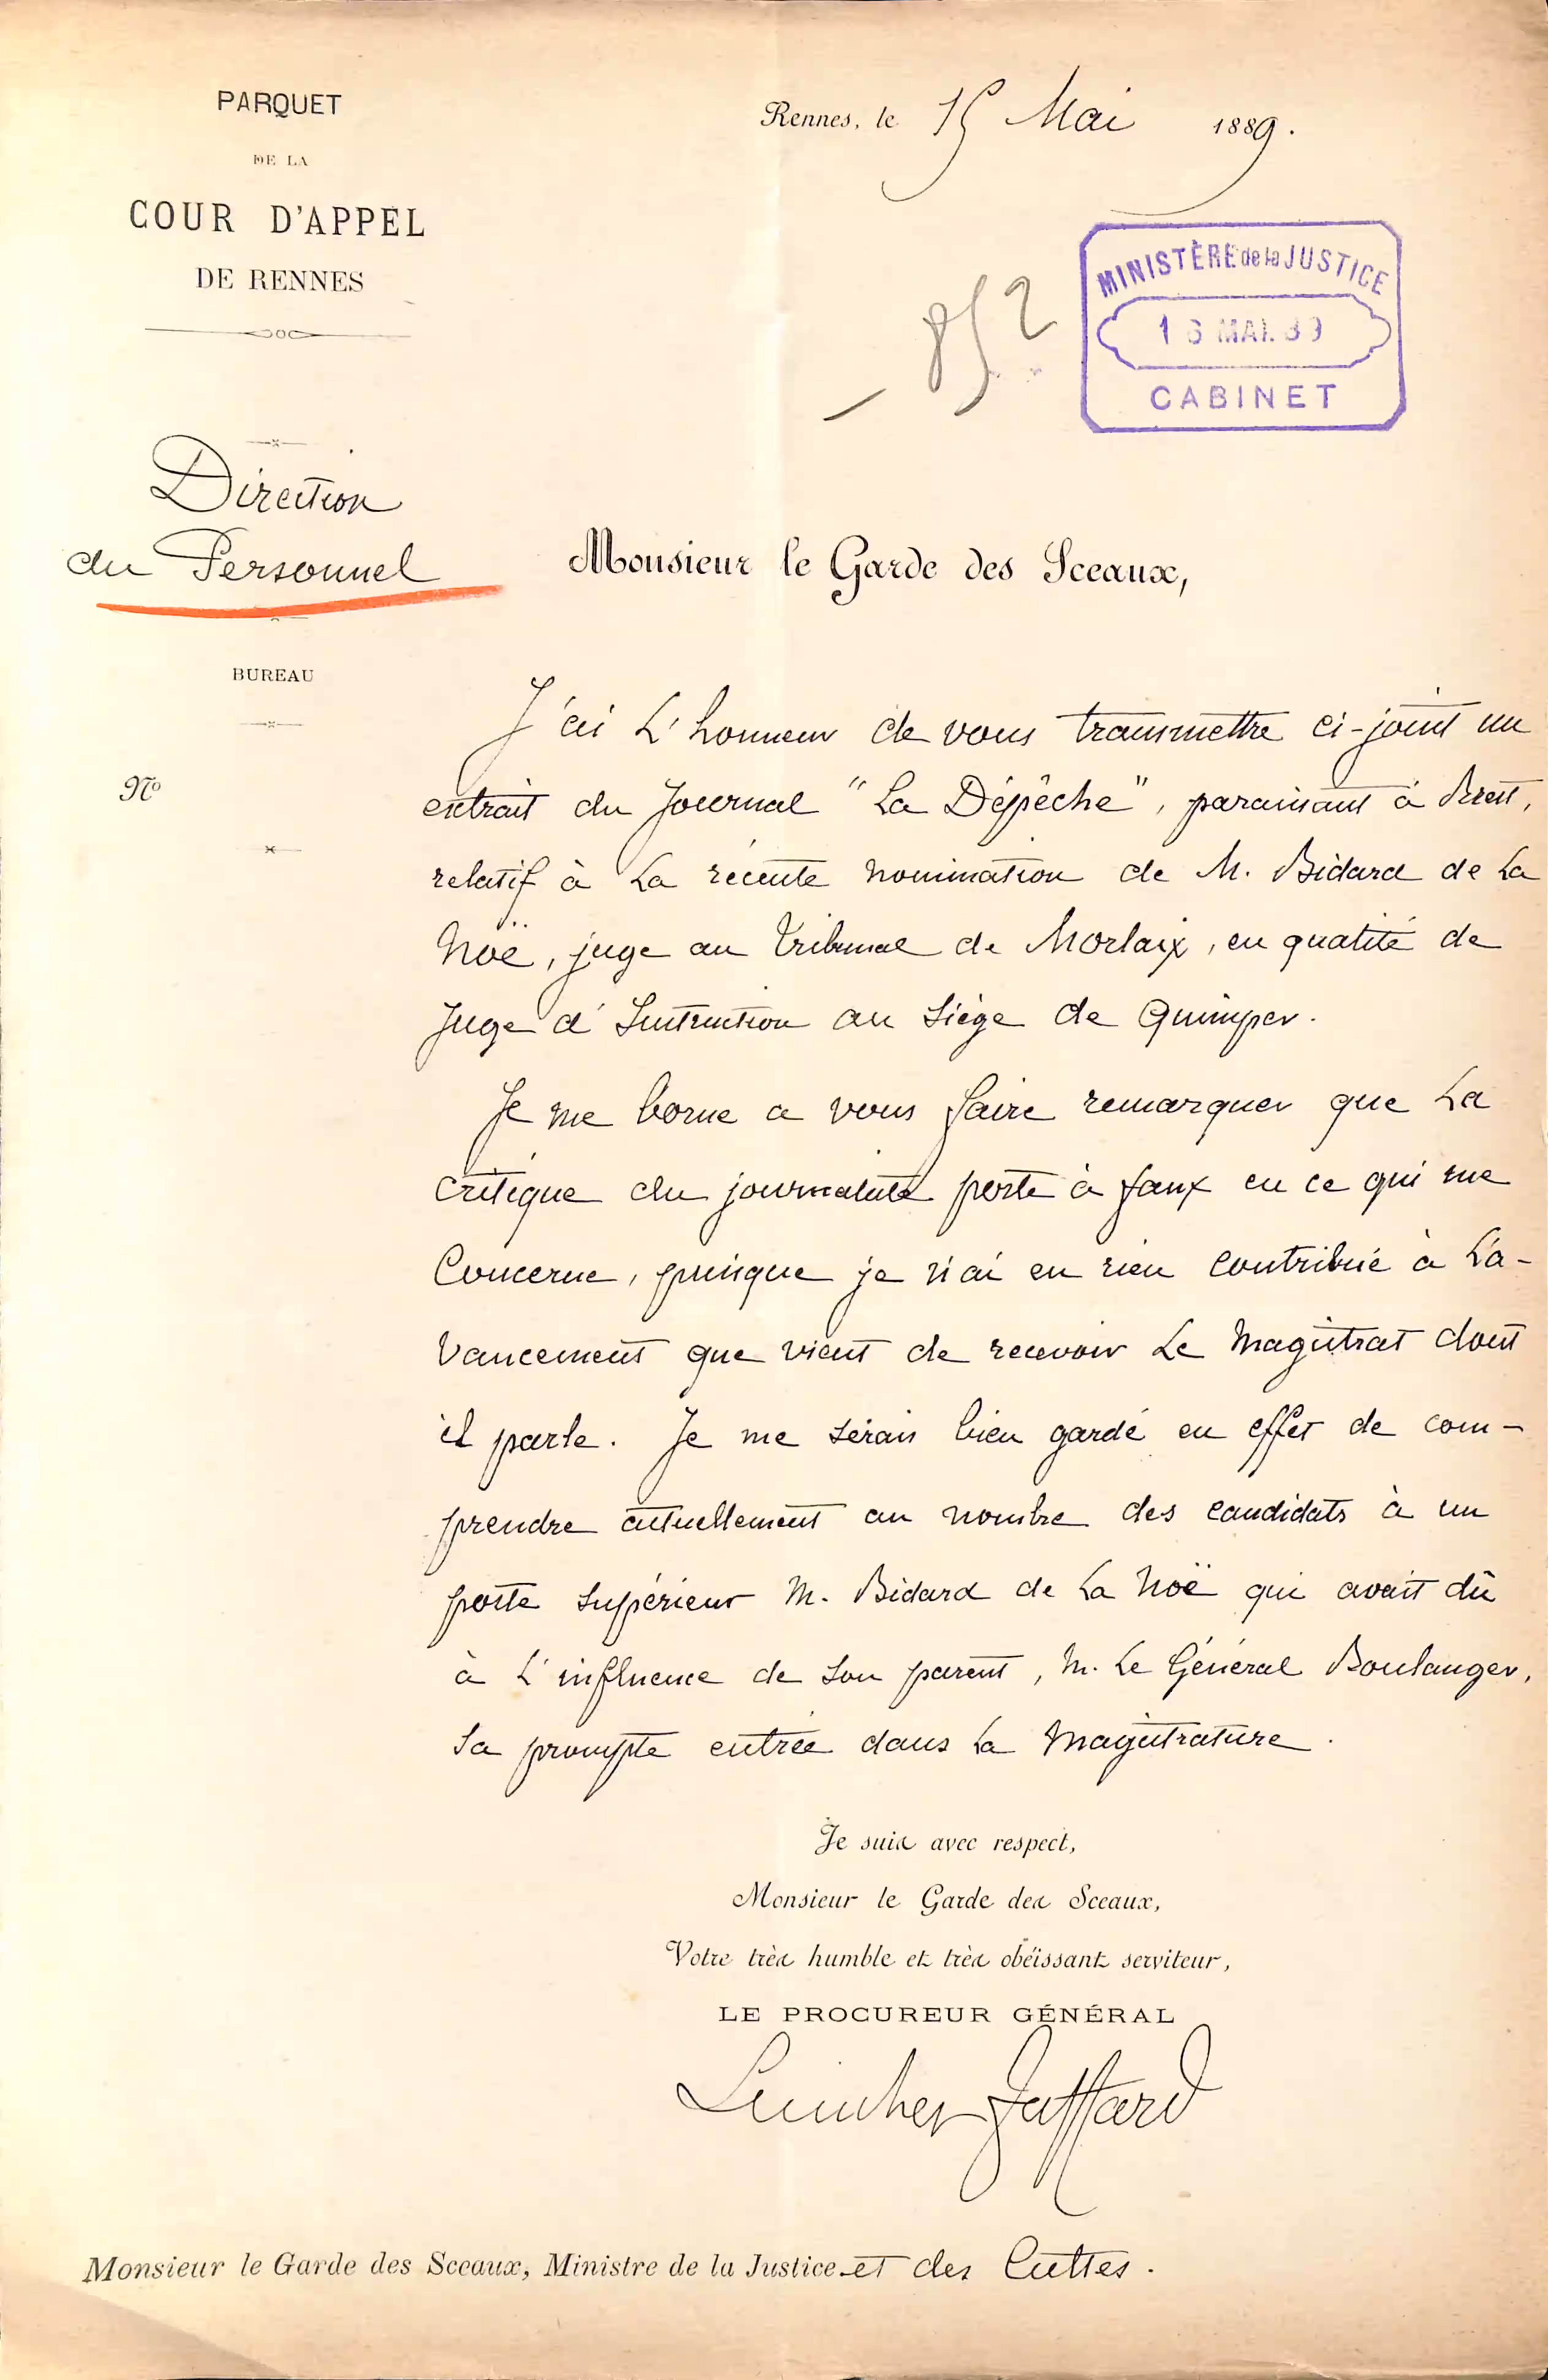 PARQUET
DE LA
COUR D'APPEL
DE RENNES
Rennes, le 15 Mai 1889.
852
MINISTÈRE de la JUSTICE
16 MAI. 89
CABINET
Direction
du Personnel
BUREAU
No
Monsieur le Garde des Sceaux,
J'ai l'honneur de vous transmettre ci-joint un
extrait du Journal "La Dépêche", paraissant à Brest,
relatif à la récente nomination de M. Bidard de la
Noë, juge au Tribunal de Morlaix, en qualité de
Juge d'Instruction au siège de Quimper.
Je me borne a vous faire remarquer que la
critique du journaliste porte à faux en ce qui me
concerne, puisque je n'ai en rien contribué à l'a-
vancement que vient de recevoir le magistrat dont
il parle. Je me serais bien gardé en effet de com-
prendre actuellement au nombre des candidats à un
poste supérieur M. Bidard de la Noë qui avait dû
à l'influence de son parent, M. le Général Boulanger,
sa prompte entrée dans la magistrature.
Je suis avec respect,
Monsieur le Garde des Sceaux,
Votre très humble et très obéissant serviteur,
LE PROCUREUR GÉNÉRAL
Monsieur le Garde des Sceaux, Ministre de la Justice et des Cultes.